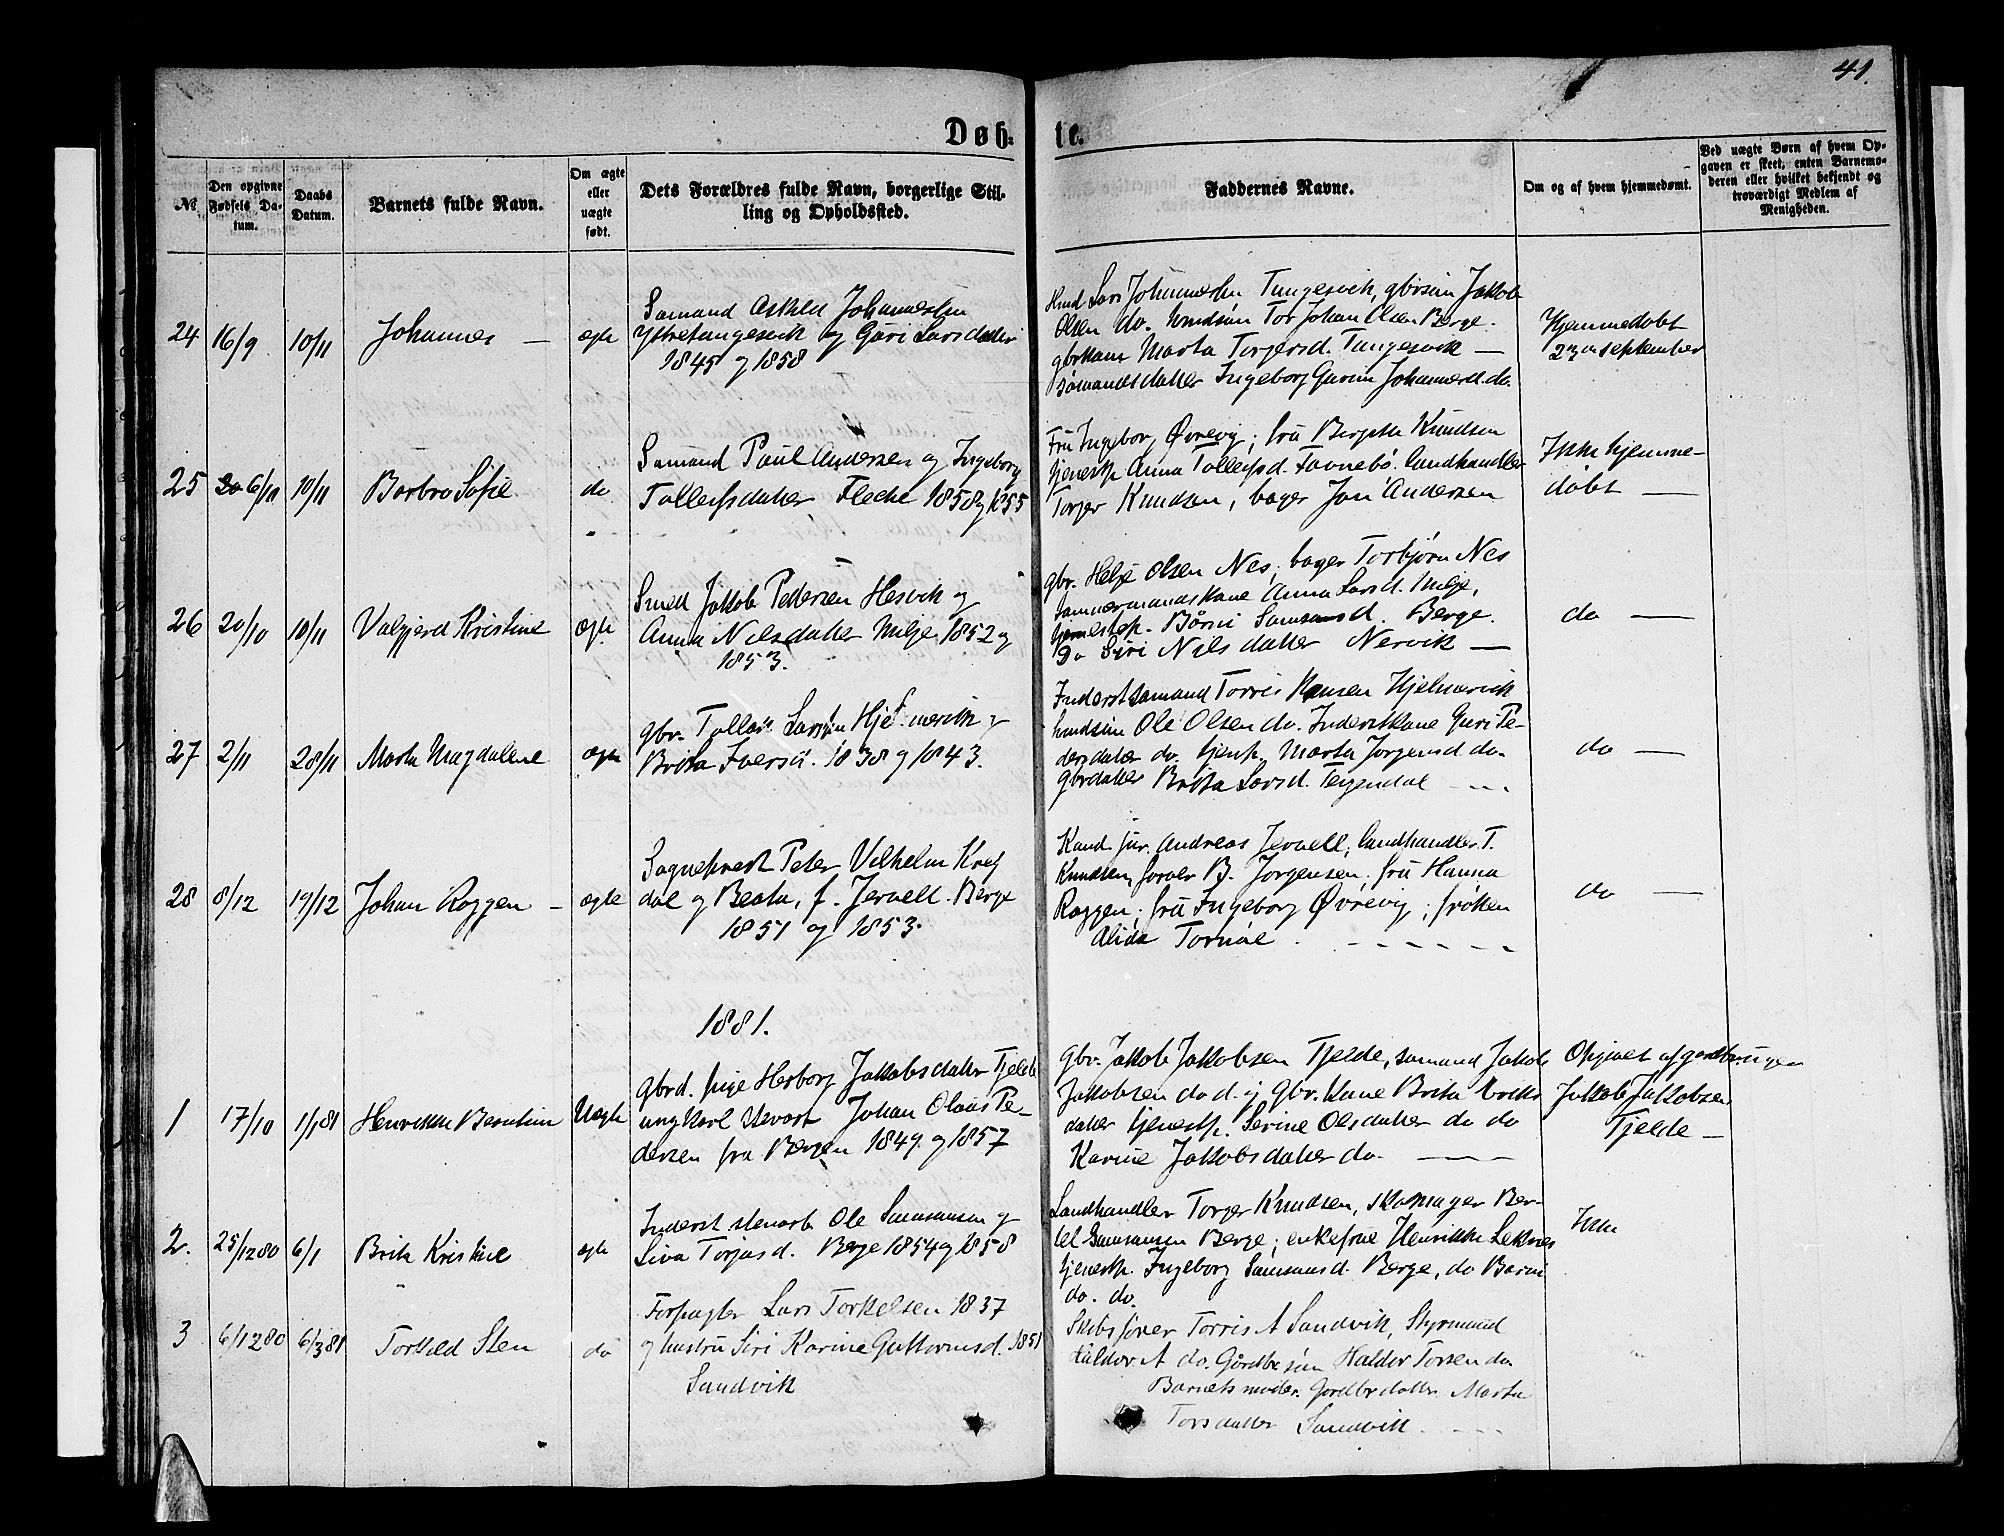 41.
Døb-
te.
№
Den opgivne Fødsels Datum.
Daabs Datum.
Barnets fulde Navn.
Om ægte eller uægte født.
Dets Forældres fulde Navn, borgerlige Stilling og Opholdssted.
Faddernes Navne.
Om og af hvem hjemmedøbt.
Ved uægte Børn af hvem Opgaven er skeet, enten Barnemoderen eller hvilket bekjendt og troværdigt Medlem af Menigheden.
24 16/9 10/11 Johannes — ægte
Sømand Askild Johannessen
Ytretungesvik og Guri Larsdatter
1845 og 1858
Lars Johannessen Tungesvik, gbrsøn Jakob
Olsen do. Tor Johan Olsen Berge.
gbrkone Marta Torgersd. Tungesvik —
sømandsdatter Ingeborg Gurine Johannesd. do.
Hjemmedøbt
23de september
25 6/10 10/11 Barbro Sofie do
Sømand Paul Andersen og Ingeborg
Tolleifsdatter Flecke 1858 og 1855
Fru Ingeborg Øvrevig; fru Bergitte Knudsen
tjenestp. Anna Tolleifsd. Favnebø. Landhandler
Torger Knudsen, bager Jon Andersen
Ikke hjemme-
døbt —
26 20/10 10/11 Valgjerd Kristine ægte
Smed Jakob Pedersen Hesvik og
Anna Nilsdatter Milje 1852 og
1853.
gbr. Helje Olsen Nes; bager Torbjørn Nes
tømmermandskone Anna Larsd. Milje,
tjenestep. Børni Samsonsd. Berge.
Do Siri Nilsdatter Nervik —
do —
27 2/11 28/11 Marta Magdalene ægte
gbr. Larssøn og
Brita Iversd. 1838 og 1843.
Inderst sømand Torris Hansen
Ole Olsen do. Inderstkone Guri Pe-
dersdatter do. tjenp. Marta Jørgensd do.
gbrdatter Brita Larsd. Teigendal
do —
28 8/12 19/12 Johan Roggen — ægte
Sogneprest Peter Vilhelm Kreg
dal og Beata, f. Jervell. Berge
1851 og 1853.
Kand. jur. Andreas Jervell, landhandler T.
Knudsen, farver B. Jørgensen; fru Hanna
Roggen; fru Ingeborg Øvrevig; frøken
Alida Tornøe.
do —
1881.
1 17/10 1/1 81 Henrikke Berntine Uægte
gbrd. pige Herborg Jakobsdatter Tjelde
ungkarl Johan Olaus Pe-
dersen fra Bergen 1849 og 1857
gbr. Jakob Jakobsen Tjelde, sømand Jakob
Jakobsen do d. y gbr. kone Brita Eriks
datter tjenestp. Serine Olsdatter do do
Karine Jakobsdatter do. —
Opgivet af gardbrugeren
Jakob Jakobsen
Tjelde —
2. 25/12 80 6/1 Brita Kristine ægte
Inderst stenarb Ole Samsonsen og
Siva Torjusd. Berge 1854 og 1858
Landhandler Torger Knudsen, skomager Ber-
tel Samsonsen Berge; enkefrue Henrikke Leknes
tjenestp. Ingeborg Samsonsd. Berge, do Barni
do. do.
Ikke
3 6/12 80 6/3 81 Torkild Sten do
Forpagter Lars Torkelsen 1837
og hustru Siri Karine Guttormsd. 1851
Sandvik
Skibsfører Torris A Sandvik, Styrmand
Haldor A do. Gårdbr søn Haldor Torsen do.
Barnets moder. Gardbrdatter Marta
Torsdatter Sandvik